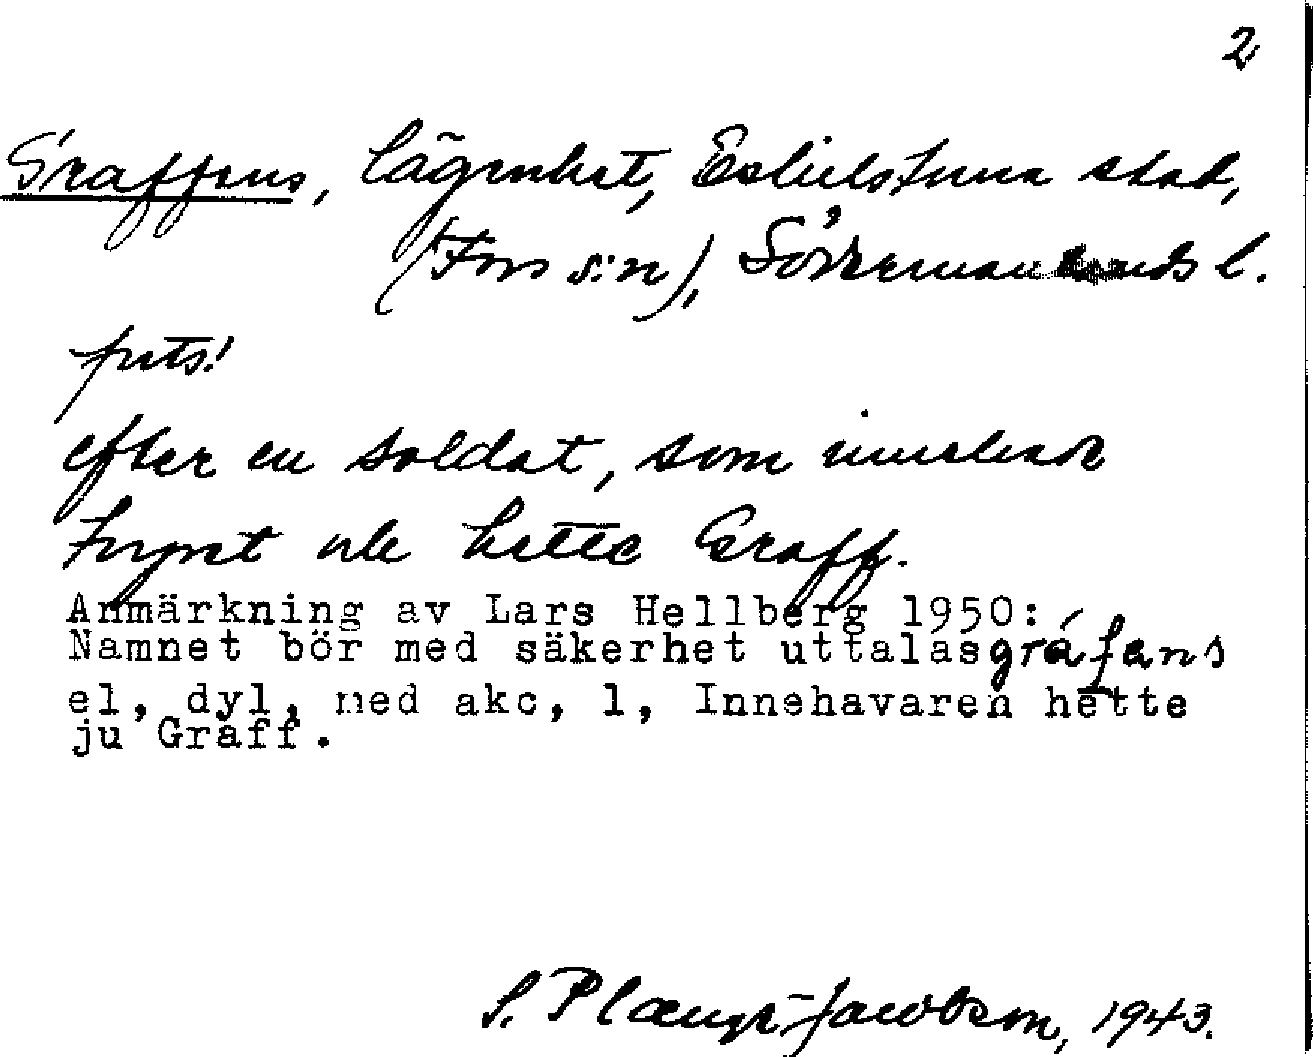 2
Graffens, lägenhet, Eskilstuna stad,
(Fors s:n), Södermanlands l.
puts!
efter en soldat, som innehade
torpet och hette Graff.
Anmärkning av Lars Hellberg 1950:
Namnet bör med säkerhet uttalas gráfens
el, dyl, med akc, 1, Innehavaren hette
ju Graff.
S. Plænge-Jacobson, 1943.